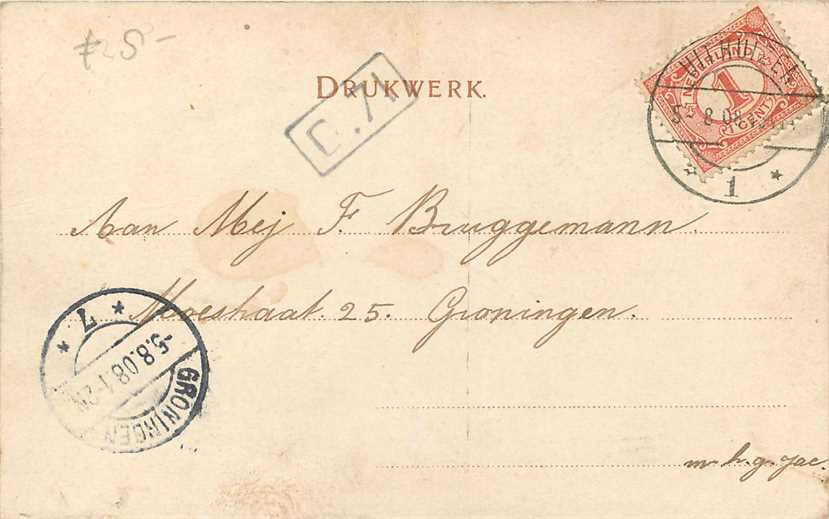 £ 25-
DRUKWERK.
D.71
NEDERLAND
1
1 CENT
5- 8 08
1
Aan Mej F. Bruggemann.
25. Groningen.
7
-5.8.08.1-2N
GRONINGEN
m. h. g. Jac.